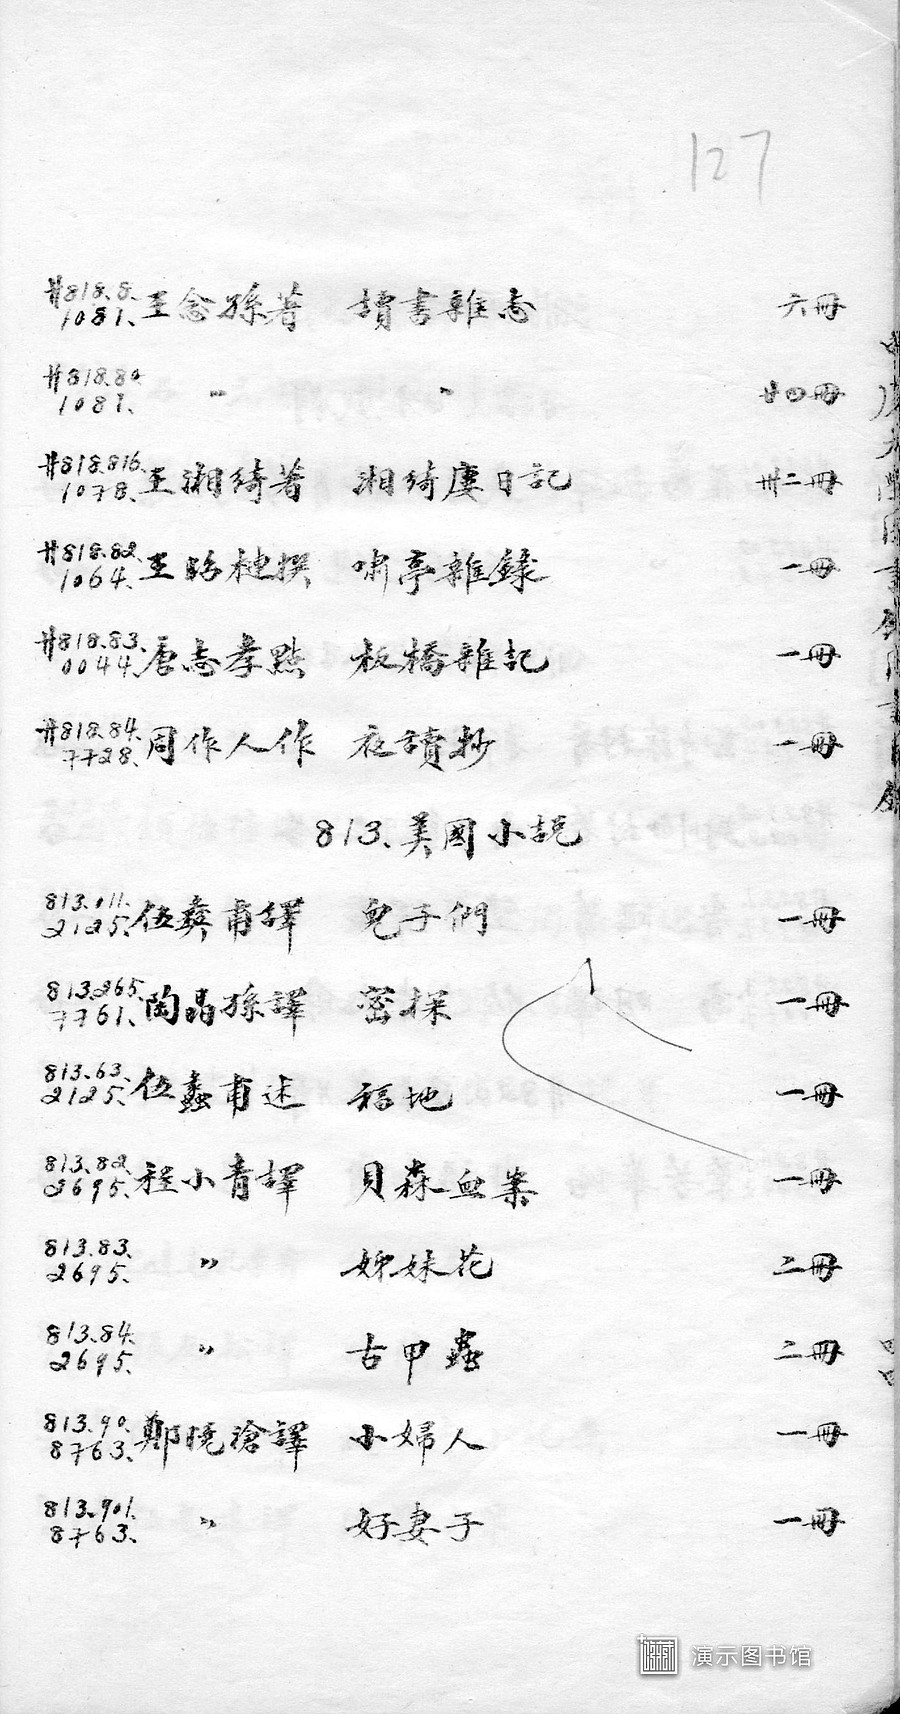 127
廿818.8. 王念孫著 讀書雜志 六冊
1081.
廿818.80 〃 〃 廿四冊
1081.
廿818.816. 王湘綺著 湘綺廔日記 卅二冊
1078.
廿818.82. 王昭槤撰 嘯亭雜錄 一冊
1064.
廿818.83. 唐志孝點 板橋雜記 一冊
0044.
廿818.84. 周作人作 夜讀抄 一冊
7728.
813、美國小説
813.011. 伍蠡甫譯 兒子們 一冊
2125.
813.265. 陶晶孫譯 密探 一冊
7761.
813.63. 伍蠡甫述 福地 一冊
2125.
813.82. 程小青譯 貝森血案 一冊
2695.
813.83. 〃 姊妹花 二冊
2695.
813.84. 〃 古甲蟲 二冊
2695.
813.90. 鄭曉滄譯 小婦人 一冊
8763.
813.901. 〃 好妻子 一冊
8763.
演示图书馆